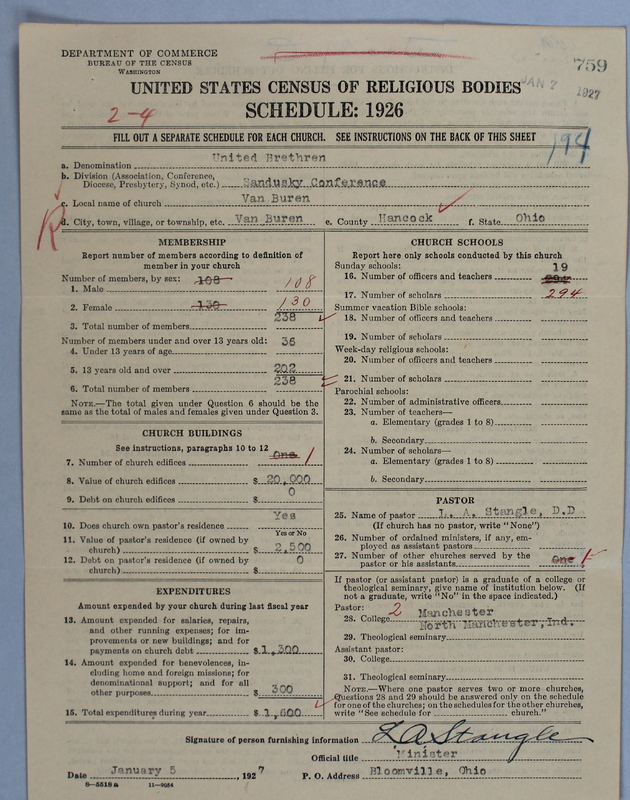 DEPARTMENT OF COMMERCE
BUREAU OF THE CENSUS
WASHINGTON
759
JAN 7 1927
UNITED STATES CENSUS OF RELIGIOUS BODIES
SCHEDULE: 1926
2-4
FILL OUT A SEPARATE SCHEDULE FOR EACH CHURCH. SEE INSTRUCTIONS ON THE BACK OF THIS SHEET
194
a. Denomination United Brethren
b. Division (Association, Conference,
Diocese, Presbytery, Synod, etc.) Sandusky Conference
c. Local name of church Van Buren
d. City, town, village, or township, etc. Van Buren e. County Hancock f. State Ohio
R
MEMBERSHIP
Report number of members according to definition of
member in your church
Number of members, by sex:
1. Male 108 108
2. Female 130 130
3. Total number of members 238
Number of members under and over 13 years old:
4. Under 13 years of age 36
5. 13 years old and over 202
6. Total number of members 238
NOTE.—The total given under Question 6 should be the
same as the total of males and females given under Question 3.
CHURCH BUILDINGS
See instructions, paragraphs 10 to 12
7. Number of church edifices One 1
8. Value of church edifices $ 20,000
9. Debt on church edifices $ 0
10. Does church own pastor's residence Yes
Yes or No
11. Value of pastor's residence (if owned by
church) $ 2,500
12. Debt on pastor's residence (if owned by
church) $ 0
EXPENDITURES
Amount expended by your church during last fiscal year
13. Amount expended for salaries, repairs,
and other running expenses; for im-
provements or new buildings; and for
payments on church debt $ 1,300
14. Amount expended for benevolences, in-
cluding home and foreign missions; for
denominational support; and for all
other purposes $ 300
15. Total expenditures during year $ 1,600
CHURCH SCHOOLS
Report here only schools conducted by this church
Sunday schools:
16. Number of officers and teachers 19 294
17. Number of scholars 294
Summer vacation Bible schools:
18. Number of officers and teachers
19. Number of scholars
Week-day religious schools:
20. Number of officers and teachers
21. Number of scholars
Parochial schools:
22. Number of administrative officers
23. Number of teachers—
a. Elementary (grades 1 to 8)
b. Secondary
24. Number of scholars—
a. Elementary (grades 1 to 8)
b. Secondary
PASTOR
25. Name of pastor L. A. Stangle, D.D
(If church has no pastor, write "None")
26. Number of ordained ministers, if any, em-
ployed as assistant pastors
27. Number of other churches served by the
pastor or his assistants One 1
If pastor (or assistant pastor) is a graduate of a college or
theological seminary, give name of institution below. (If
not a graduate, write "No" in the space indicated.)
Pastor:
28. College 2 Manchester
North Manchester, Ind.
29. Theological seminary
Assistant pastor:
30. College
31. Theological seminary
NOTE.—Where one pastor serves two or more churches,
Questions 28 and 29 should be answered only on the schedule
for one of the churches; on the schedules for the other churches,
write "See schedule for church."
Signature of person furnishing information L A Stangle
Official title Minister
Date January 5, 1927 P. O. Address Bloomville, Ohio
8-5518a 11-9034